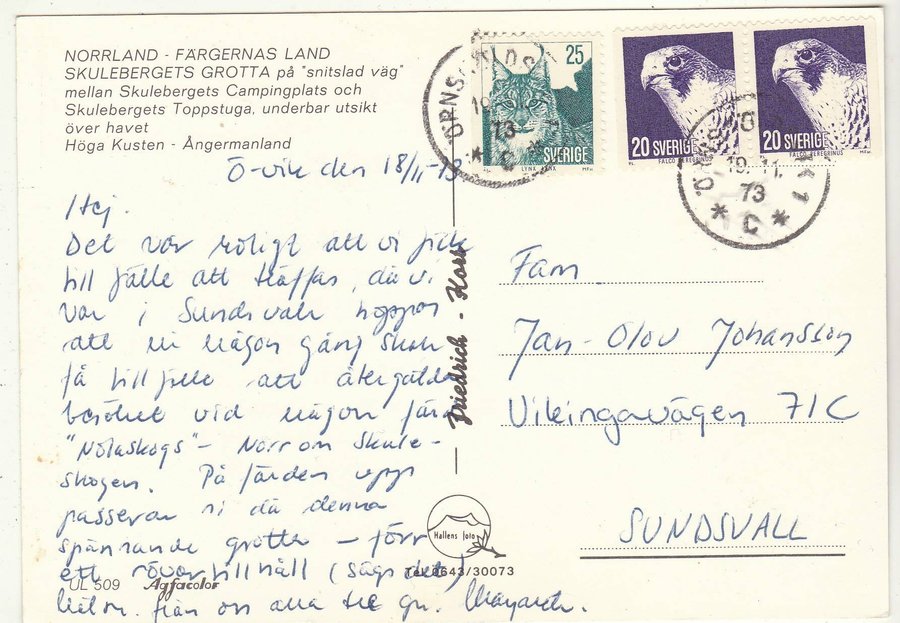 NORRLAND - FÄRGERNAS LAND
SKULEBERGETS GROTTA på "snitslad väg"
mellan Skulebergets Campingplats och
Skulebergets Toppstuga, underbar utsikt
över havet
Höga Kusten - Ångermanland
Ö-vik den 18/11-73
Hej.
Det var roligt att vi fick
till fälle att träffas, då vi
var i Sundsvall hoppas
att ni någon gång skall
få till fälle att återgälda
besöket vid någon färd
"Nolaskogs" - Norr om Skule-
skogen. På färden upp
passerar ni då denna
spännande grotta - förr
ett rövartillhåll (sägs det)
Häln. från oss alla tre gn.
UL 509 Agfacolor
Friedrich - Kort
Hallens foto
Tel 0643/30073
25
SVERIGE
LYNX LYNX
20 SVERIGE
FALCO PEREGRINUS
20 SVERIGE
FALCO PEREGRINUS
ÖRNSKÖLDSVIK 1
19. 11.
73
* C *
Fam
Jan-Olov Johansson
Vikingavägen 71C
SUNDSVALL